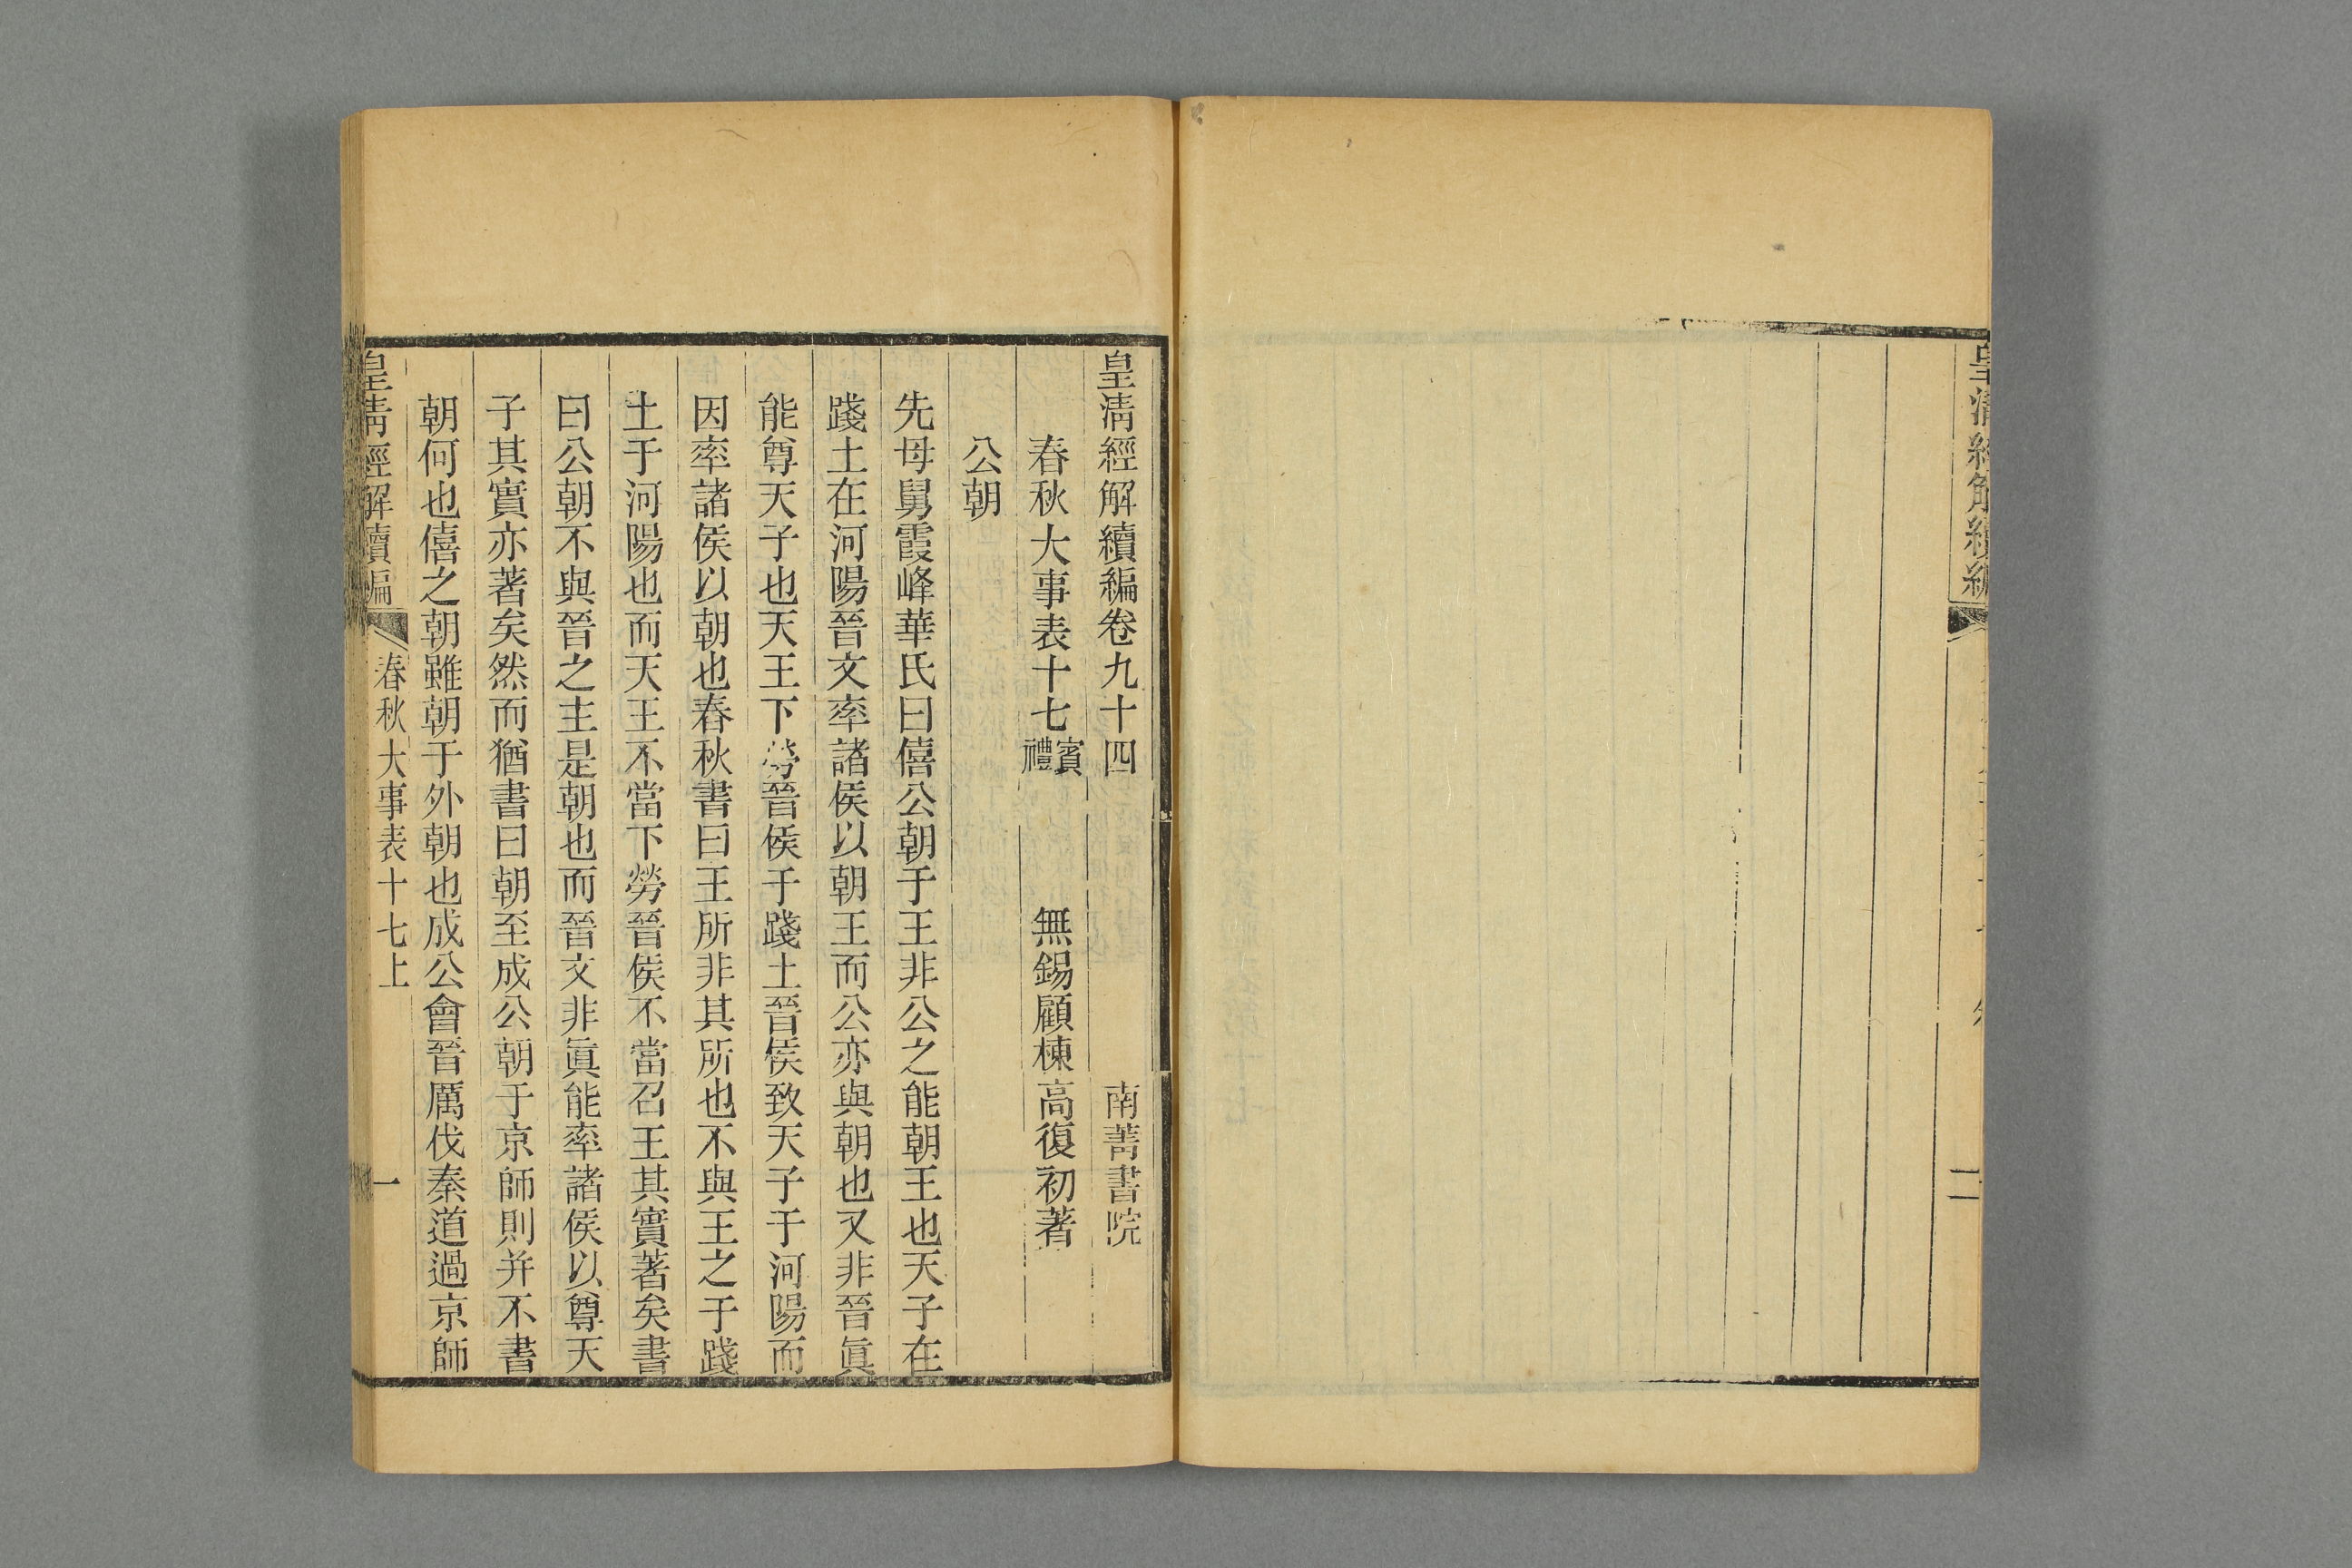 皇清經解續編
二
皇清經解續編卷九十四 南菁書院
春秋大事表十七賓禮 無錫顧棟高復初著
公朝
先母舅霞峰華氏曰僖公朝于王非公之能朝王也天子在
踐土在河陽晉文率諸侯以朝王而公亦與朝也又非晉眞
能尊天子也天王下勞晉侯于踐土晉侯致天子于河陽而
因率諸侯以朝也春秋書曰王所非其所也不與王之于踐
土于河陽也而天王不當下勞晉侯不當召王其實著矣書
曰公朝不與晉之主是朝也而晉文非眞能率諸侯以尊天
子其實亦著矣然而猶書曰朝至成公朝于京師則并不書
朝何也僖之朝雖朝于外朝也成公會晉厲伐秦道過京師
皇清經解續編 春秋大事表十七上 一